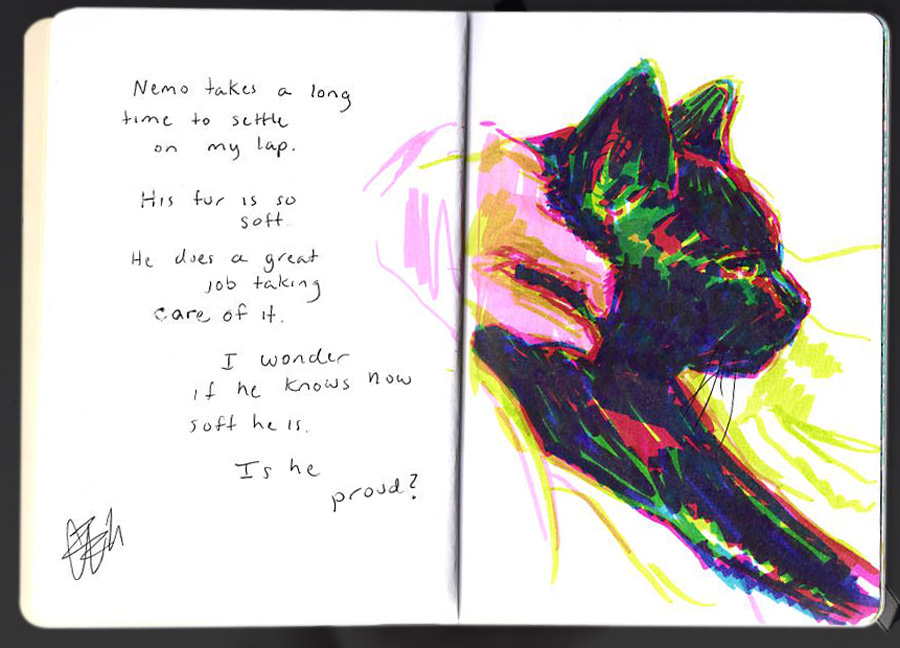 Nemo takes a long
time to settle
on my lap.
His fur is so
soft.
He does a great
job taking
care of it.
I wonder
if he knows how
soft he is.
Is he
proud?